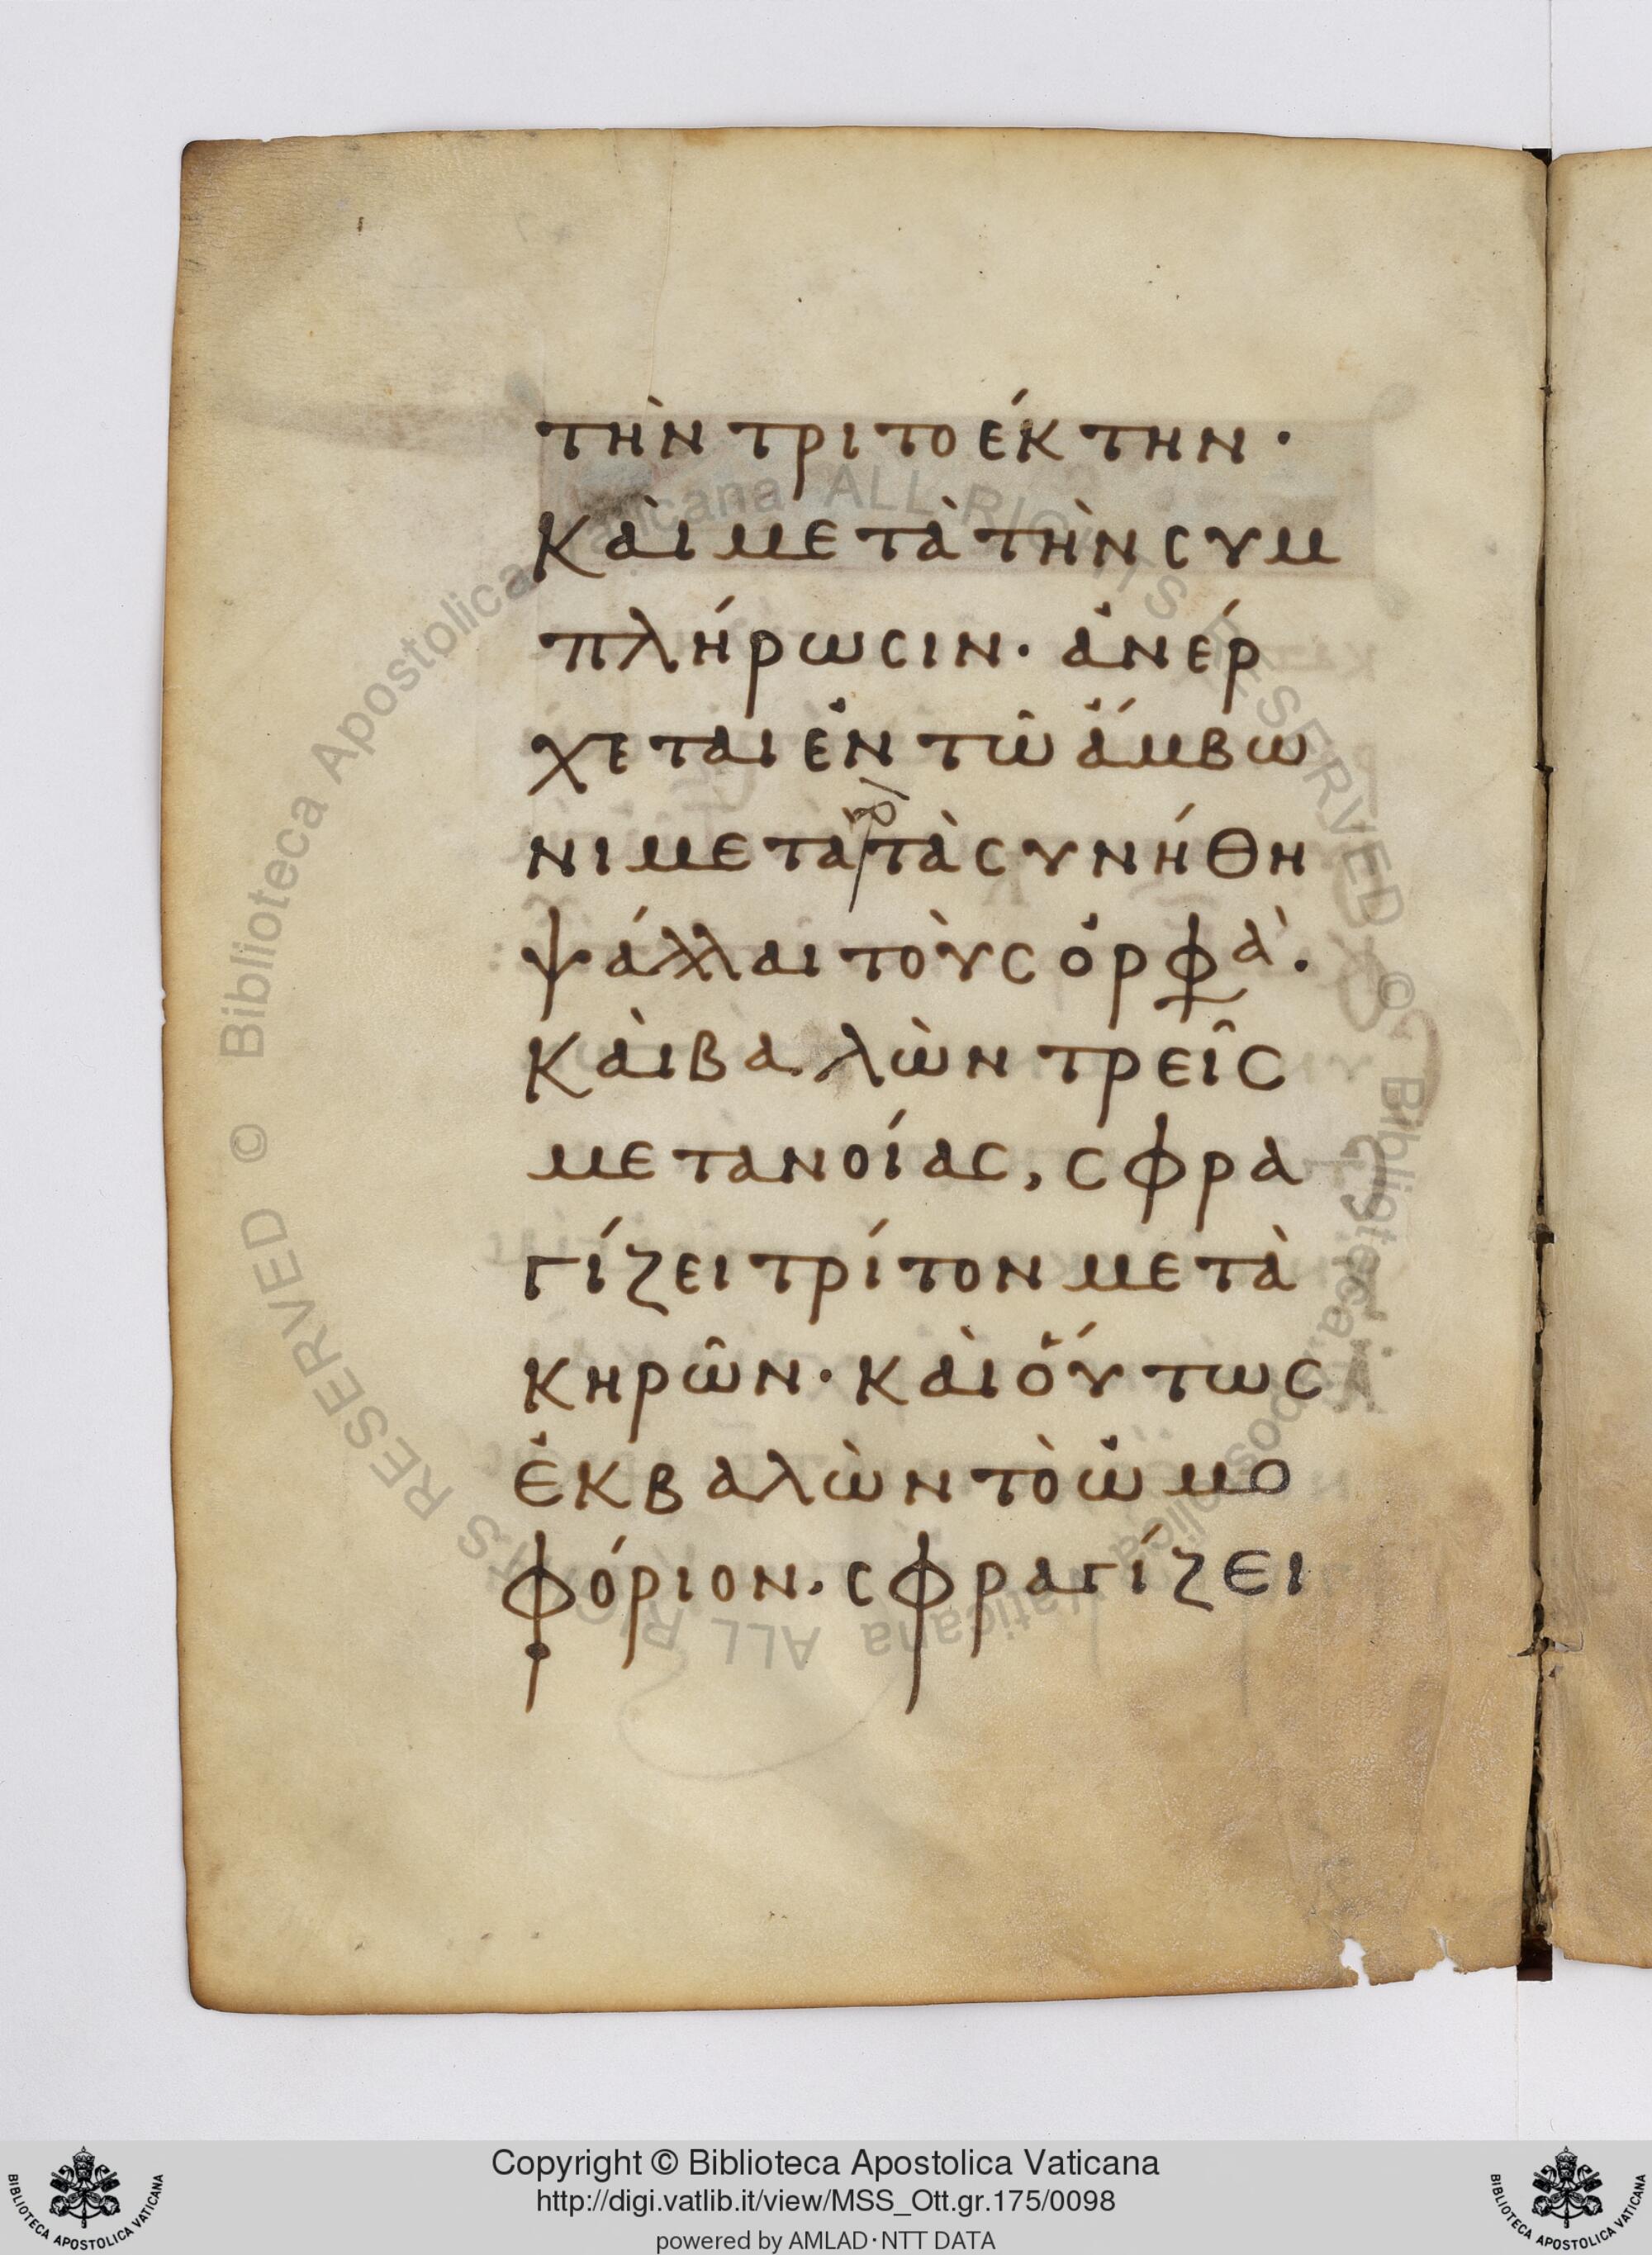 τὴν τριτοέκτην·
Καὶ μετὰ τὴν συμ
πλήρωσιν· ἀνέρ
χεται ἐν τῶ ἄμβω
νι μετα τὰ συνήθη
ψάλλαι τοὺς ὀρφὰ.
Καὶ βαλὼν τρεῖς
μετανοίας, σφρα
γίζει τρίτον μετὰ
κηρῶν· καὶ οὕτως
ἐκβαλὼν τὸ ὠμο
φόριον. σφραγίζει
© Biblioteca Apostolica Vaticana ALL RIGHTS RESERVED © Biblioteca Apostolica Vaticana ALL RIGHTS RESERVED
Copyright © Biblioteca Apostolica Vaticana
http://digi.vatlib.it/view/MSS_Ott.gr.175/0098
powered by AMLAD·NTT DATA
BIBLIOTECA APOSTOLICA VATICANA
BIBLIOTECA APOSTOLICA VATICANA